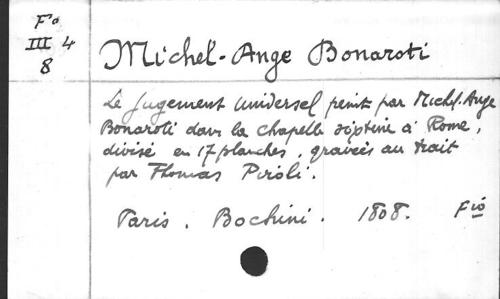 Fº
III 4
8
Michel-Ange Bonaroti
Le Jugement Universel peint par Michel-Ange
Bonaroti dans la chapelle sixtine à Rome,
divisé en 17 planches, gravées au trait
par Thomas Piroli.
Paris. Bochini. 1808. Fiº